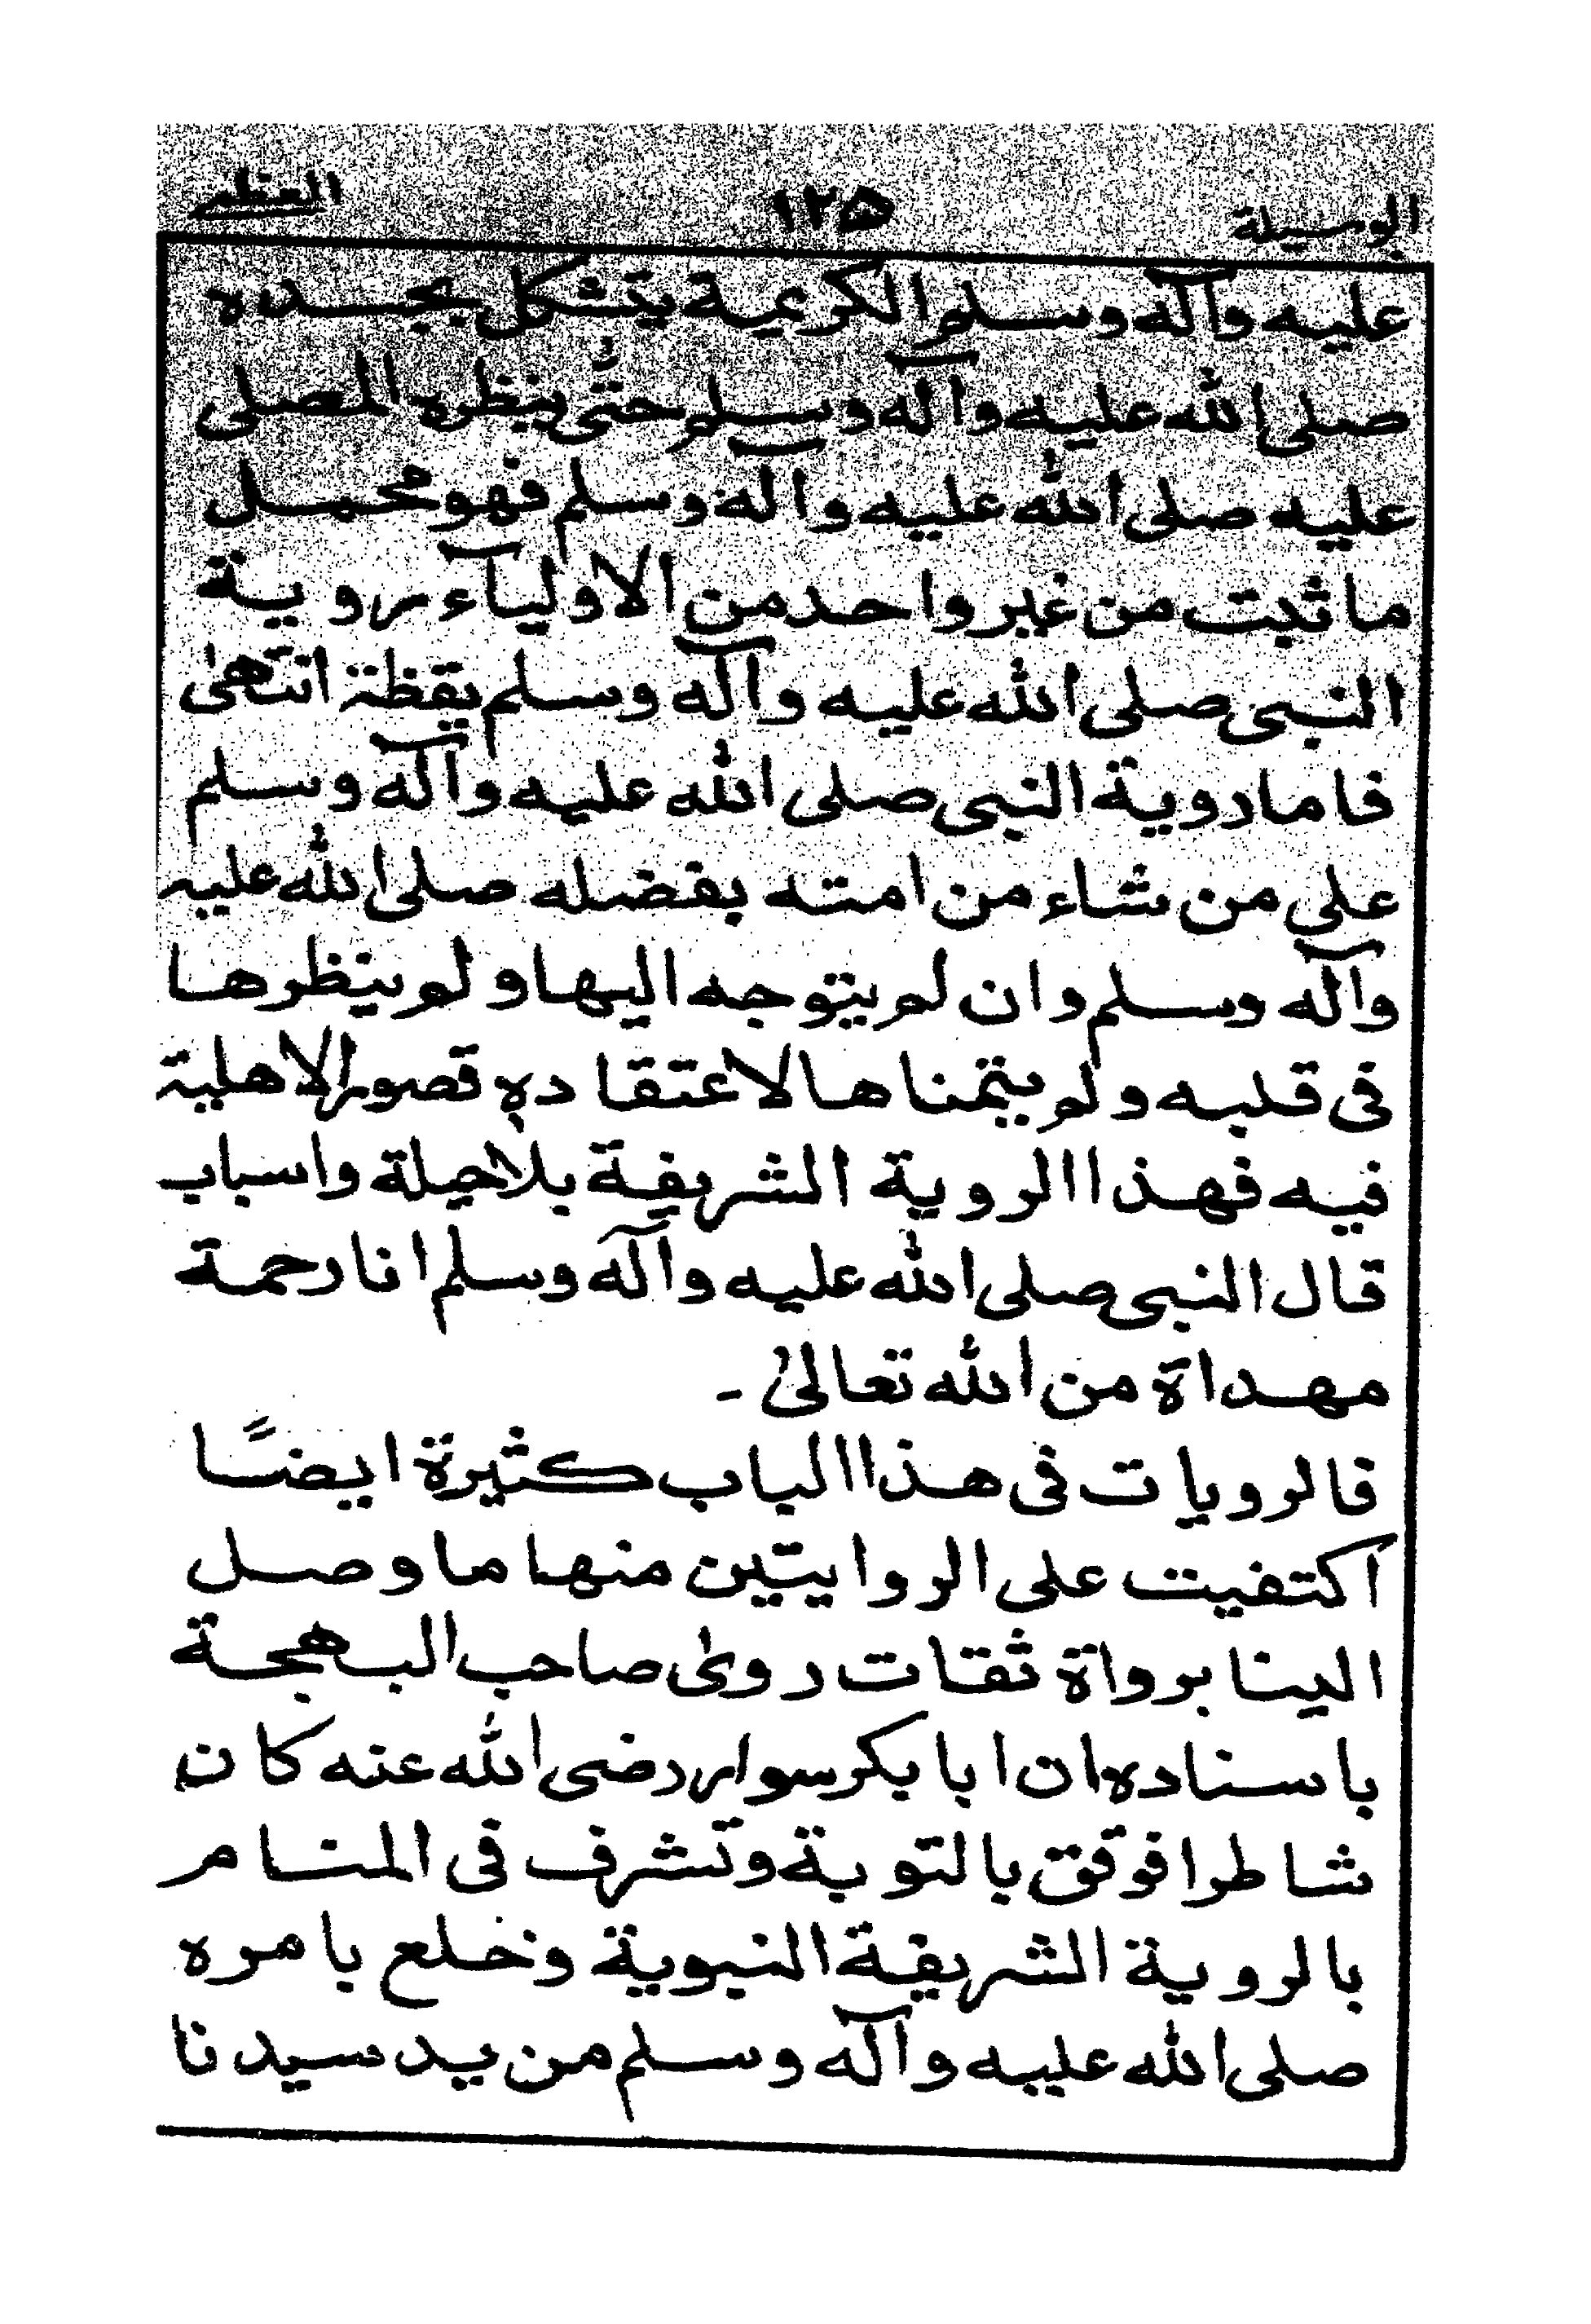 الوسيلة ١٢٥ العظمى
عليه وآله وسلم الكريمية يتشكل بجسده
صلى الله عليه وآله وسلم حتّى ينظره المصلى
عليه صلى الله عليه وآله وسلم فهو محمل
ما ثبت من غير واحد من الاولياء روية
النبى صلى الله عليه وآله وسلم يقظة انتهىٰ
فاما روية النبى صلى الله عليه وآله وسلم
على من شاء من امته بفضله صلى الله عليه
وآله وسلم وان لم يتوجه اليها ولم ينظرها
فى قلبه ولم يتمناها لاعتقاده قصور الاهلية
فيه فهذا الروية الشريفة بلاحيلة واسباب
قال النبى صلى الله عليه وآله وسلم انا رحمة
مهداة من الله تعالىٰ ـ
فالرويات فى هذا الباب كثيرة ايضًا
اكتفيت على الروايتين منها ما وصل
الينا برواة ثقات روىٰ صاحب البهجة
باسناده ان ابا بكر سوار رضى الله عنه كان
شاطرا فوفق بالتوبة وتشرف فى المنام
بالروية الشريفة النبوية وخلع بامره
صلى الله عليه وآله وسلم من يد سيدنا